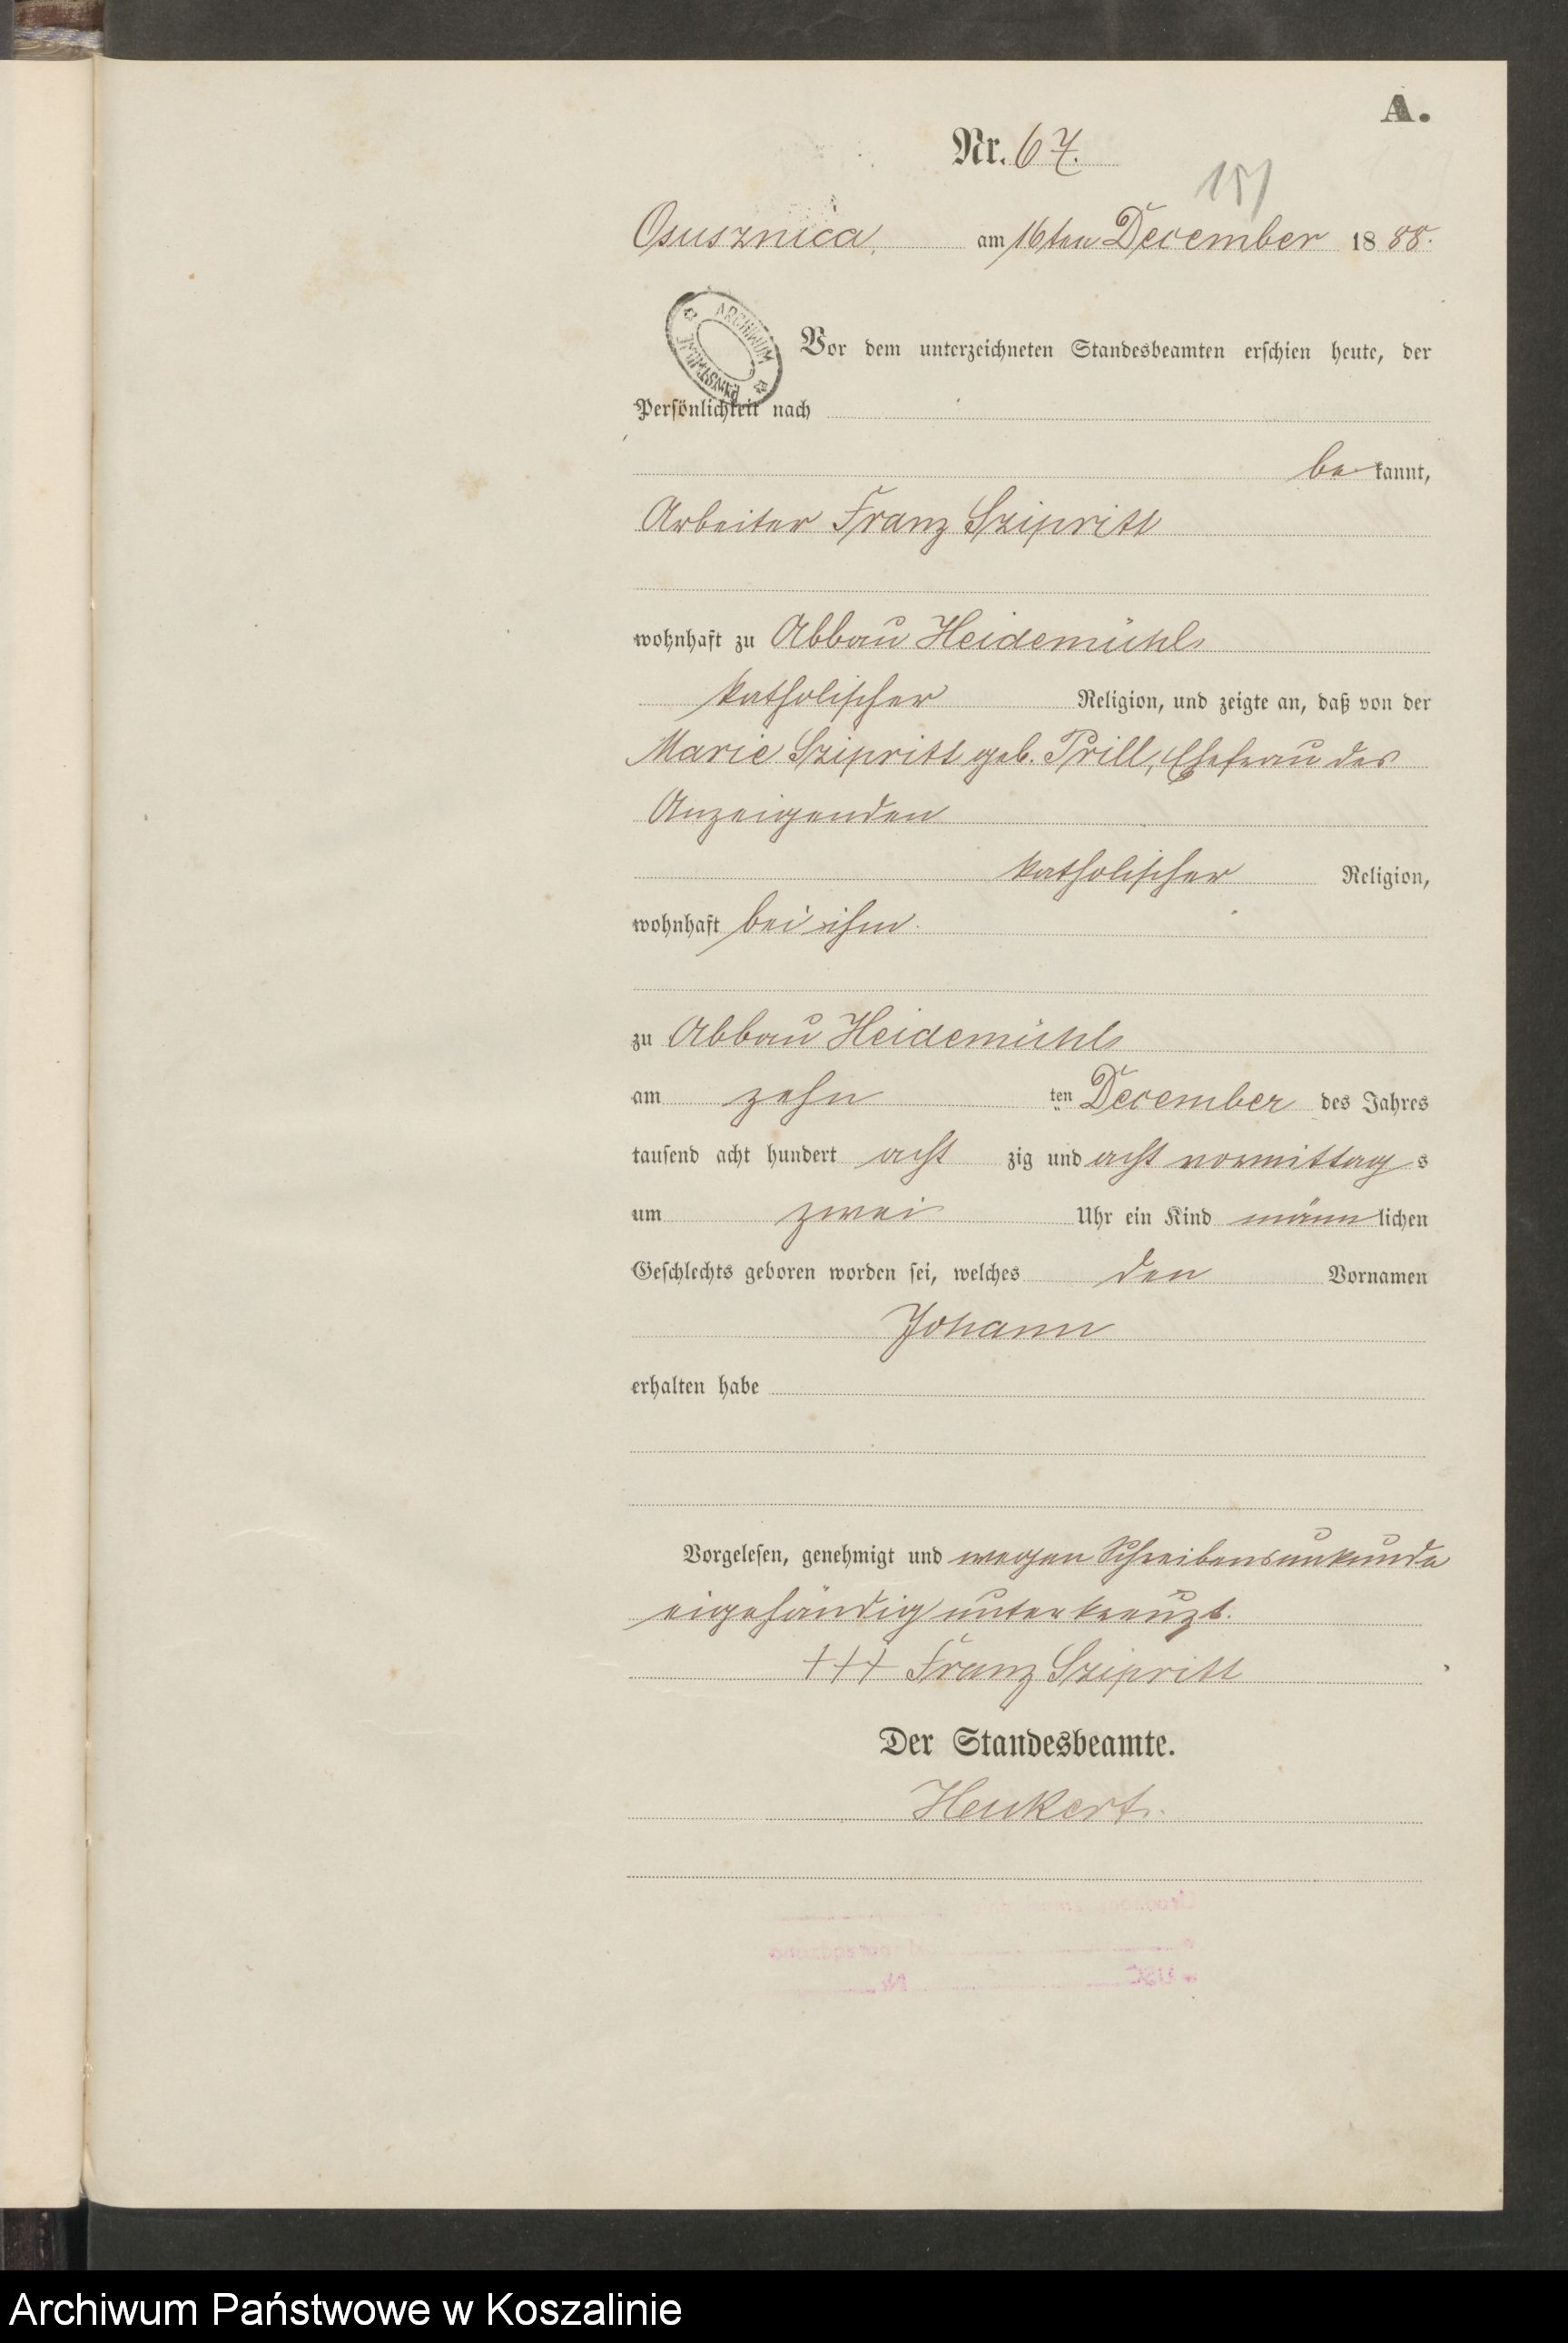 A.
Nr. 67.
151
Osusznica, am 16ten December 1888.
ARCHIWUM
Vor dem unterzeichneten Standesbeamten erschien heute, der
Persönlichkeit nach
be kannt,
Arbeiter Franz Szipritt
wohnhaft zu Abbau Heidemühl
katholischer Religion, und zeigte an, daß von der
Marie Szipritt geb. Prill, Ehefrau des
Anzeigenden
katholischer Religion,
wohnhaft bei ihm.
zu Abbau Heidemühl
am zehn ten December des Jahres
tausend acht hundert acht zig und acht vormittag s
um zwei Uhr ein Kind männ lichen
Geschlechts geboren worden sei, welches den Vornamen
Johann
erhalten habe
Vorgelesen, genehmigt und wegen Schreibensunkunde
eigehändig unterkreuzt.
+++ Franz Szipritt
Der Standesbeamte.
Henkert.
USC Nr
Archiwum Państwowe w Koszalinie